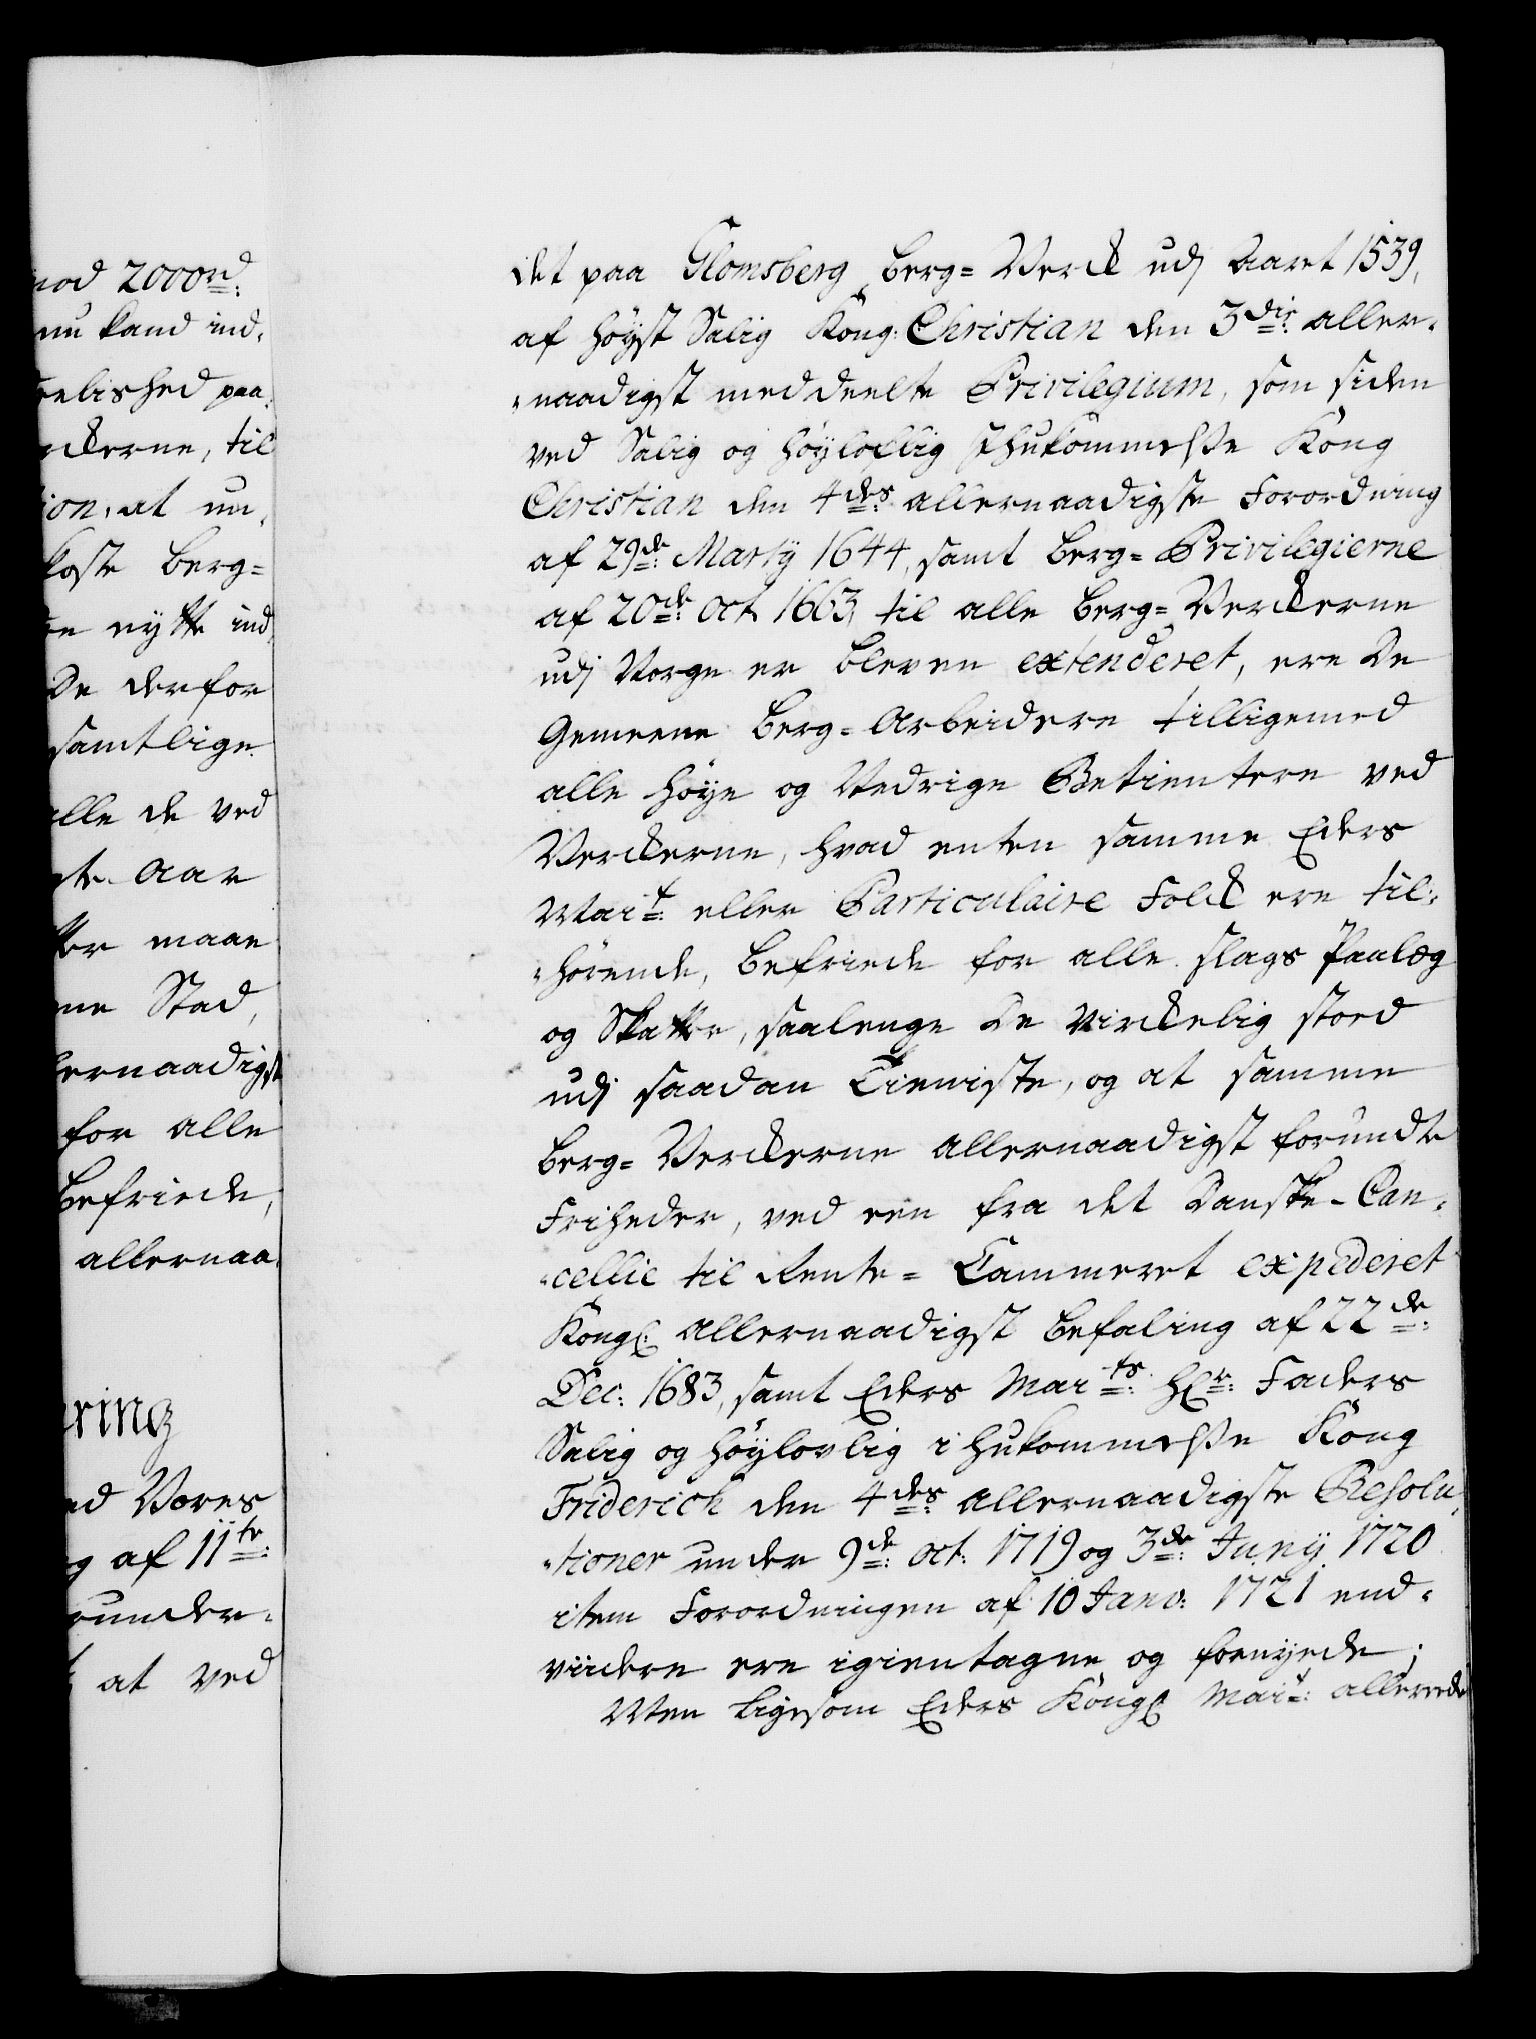 mod 2000rd:
nu kand ind-
relished paa
rckerne, til
ion, at un-
koste Berg=
nytte ind
de derfor
samtlige
alle de ved
gte Aar
maae
Stad,
lernaadigst
for alle
befriede,
allernaa-
ring
ed Vores
g af 11te:
runder-
at ved
det paa Glomsberg Berg=Verck udj Aaret 1539,
af Høyst Salig Kong: Christian den 3die: aller-
-naadigst meddeelte Privilegium, som siden
ved Salig og Høylovlig Ihukommelse Kong
Christian den 4des: allernaadigste Forordning
af 29de: Martij 1644, samt Berg=Privilegierne
af 20de: Oct 1663, til alle Berg=Verckerne
udj Norge er bleven extenderet, ere de
Gemeene Berg=Arbeidere tilligemed
alle Høye og Nedrige Betientere ved
Verckerne, hvad enten samme Eders
Mait: eller Particulaire Folck ere til-
-hørende, befriede for alle slags Paalæg
og Skatter, saalenge de virckelig stoed
udj saadan Tieniste, og at samme
Berg=Verckerne allernaadigst forundte
Friheder, ved een fra det Danske-Can-
-cellie til Rente=Cammeret expederet
Kongl: allernaadigst Befaling af 22de:
Dec: 1683, samt Eders Maits: Hr: Faders
Salig og Høylovlig ihukommelse Kong
Friderich den 4des: allernaadigste Resolu-
-tioner under 9de: Oct: 1719 og 3de: Junij 1720
item Forordningen af 10 Janv: 1721 end-
viidere ere igientagne og fornyede;
Men ligesom Eders Kongl Mait: allereede